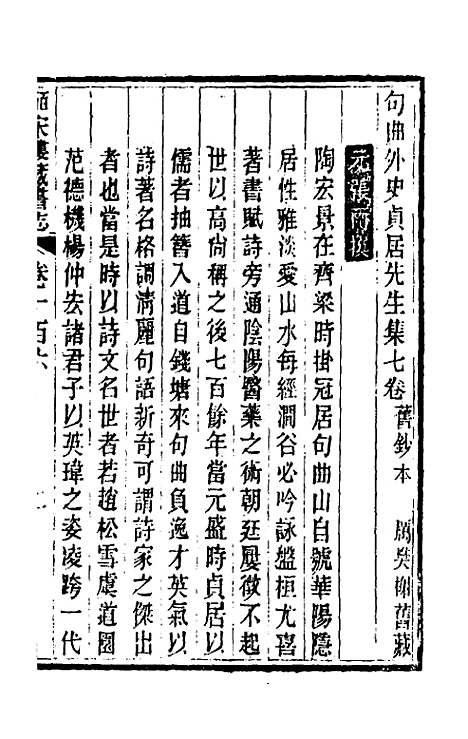 句曲外史貞居先生集七卷 舊鈔本 厲樊榭舊藏
元張雨撰
陶宏景在齊梁時掛冠居句曲山自號華陽隱
居性雅淡愛山水每經澗谷必吟詠盤桓尤喜
著書賦詩旁通陰陽醫藥之術朝廷屢徵不起
世以高尚稱之後七百餘年當元盛時貞居以
儒者抽簪入道自錢塘來句曲負逸才英氣以
詩著名格調清麗句語新奇可謂詩家之傑出
者也當是時以詩文名世者若趙松雪虞道園
范德機楊仲弘諸君子以英瑋之姿凌跨一代
皕宋樓藏書志 卷一百六